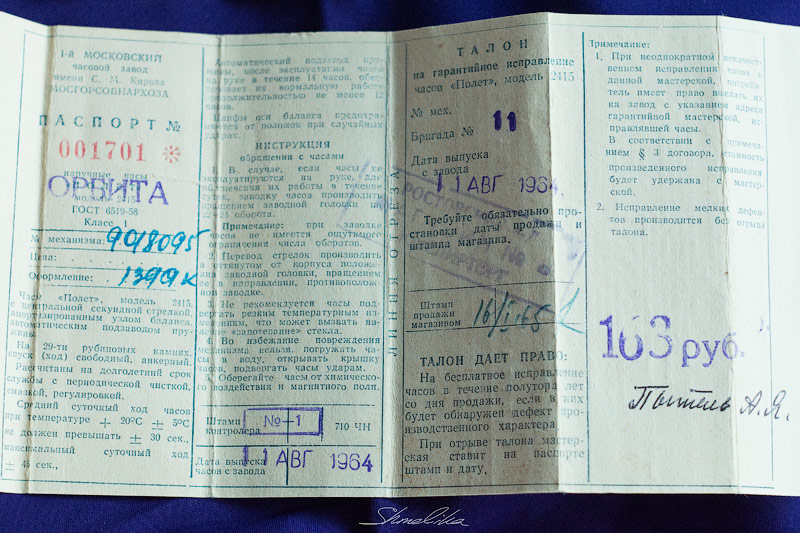 1-й МОСКОВСКИЙ
часовой завод
имени С. М. Кирова
МОСГОРСОВНАРХОЗА
ПАСПОРТ №
001701 *
наручные часы
ОРБИТА
ГОСТ 6519-58
Класс 1
№ механизма: 9018095
Цена:
Оформление: 1399к
Часы «Полет», модель 2415,
с центральной секундной стрелкой,
амортизированным узлом баланса,
автоматическим подзаводом пру-
жины.
На 29-ти рубиновых камнях,
спуск (ход) свободный, анкерный.
Рассчитаны на долголетний срок
службы с периодической чисткой,
смазкой, регулировкой.
Средний суточный ход часов
при температуре + 20°С ± 5°С
не должен превышать ± 30 сек.,
максимальный суточный ход
± 45 сек.,
Автоматический подзавод пру-
жины, после эксплуатации часов
на руке в течение 14 часов, обес-
печивает их нормальную работу
продолжительностью не менее 12
часов.
Цапфы оси баланса предохра-
нены от поломок при случайных
ударах.
ИНСТРУКЦИЯ
обращения с часами
1. В случае, если часы не
эксплуатируются на руке, для
обеспечения их работы в течение
суток, заводку часов производить
вращением заводной головки на
оборота.
Примечание: при заводке
часов не имеется ощутимого
ограничения числа оборотов.
2. Перевод стрелок производить
в оттянутом от корпуса положе-
нии заводной головки, вращением
ее в направлении, противополож-
ном заводке.
3. Не рекомендуется часы под-
вергать резким температурным из-
менениям, что может вызвать яв-
ление «запотевание» стекла.
4. Во избежание повреждения
механизма нельзя, погружать ча-
сы в воду, открывать крышку
часов, подвергать часы ударам.
5. Оберегайте часы от химическо-
го воздействия и магнитного поля.
Штамп
контролера № 1 710 ЧН
Дата выпуска
часов с завода 11 АВГ 1964
ЛИНИЯ ОТРЕЗА
ТАЛОН
на гарантийное исправление
часов «Полет», модель 2415
№ мех.
Бригада № 11
Дата выпуска
с завода 11 АВГ 1964
Требуйте обязательно про-
становки даты продажи и
штампа магазина.
Штамп
продажи
магазином 16/I-65
ТАЛОН ДАЕТ ПРАВО:
На бесплатное исправление
часов в течение полутора лет
со дня продажи, если в них
будет обнаружен дефект про-
изводственного характера.
При отрыве талона мастер-
ская ставит на паспорте
штамп и дату.
Примечание:
1. При неоднократном некачест-
венном исправлении часов в
данной мастерской, потреби-
тель имеет право выслать их
на завод с указанием адреса
гарантийной мастерской, ис-
правлявшей часы.
В соответствии с примеча-
нием § 3 договора, стоимость
произведенного исправления
будет удержана с мастер-
ской.
2. Исправление мелких дефек-
тов производится без отрыва
талона.
163 руб.
Shmelika